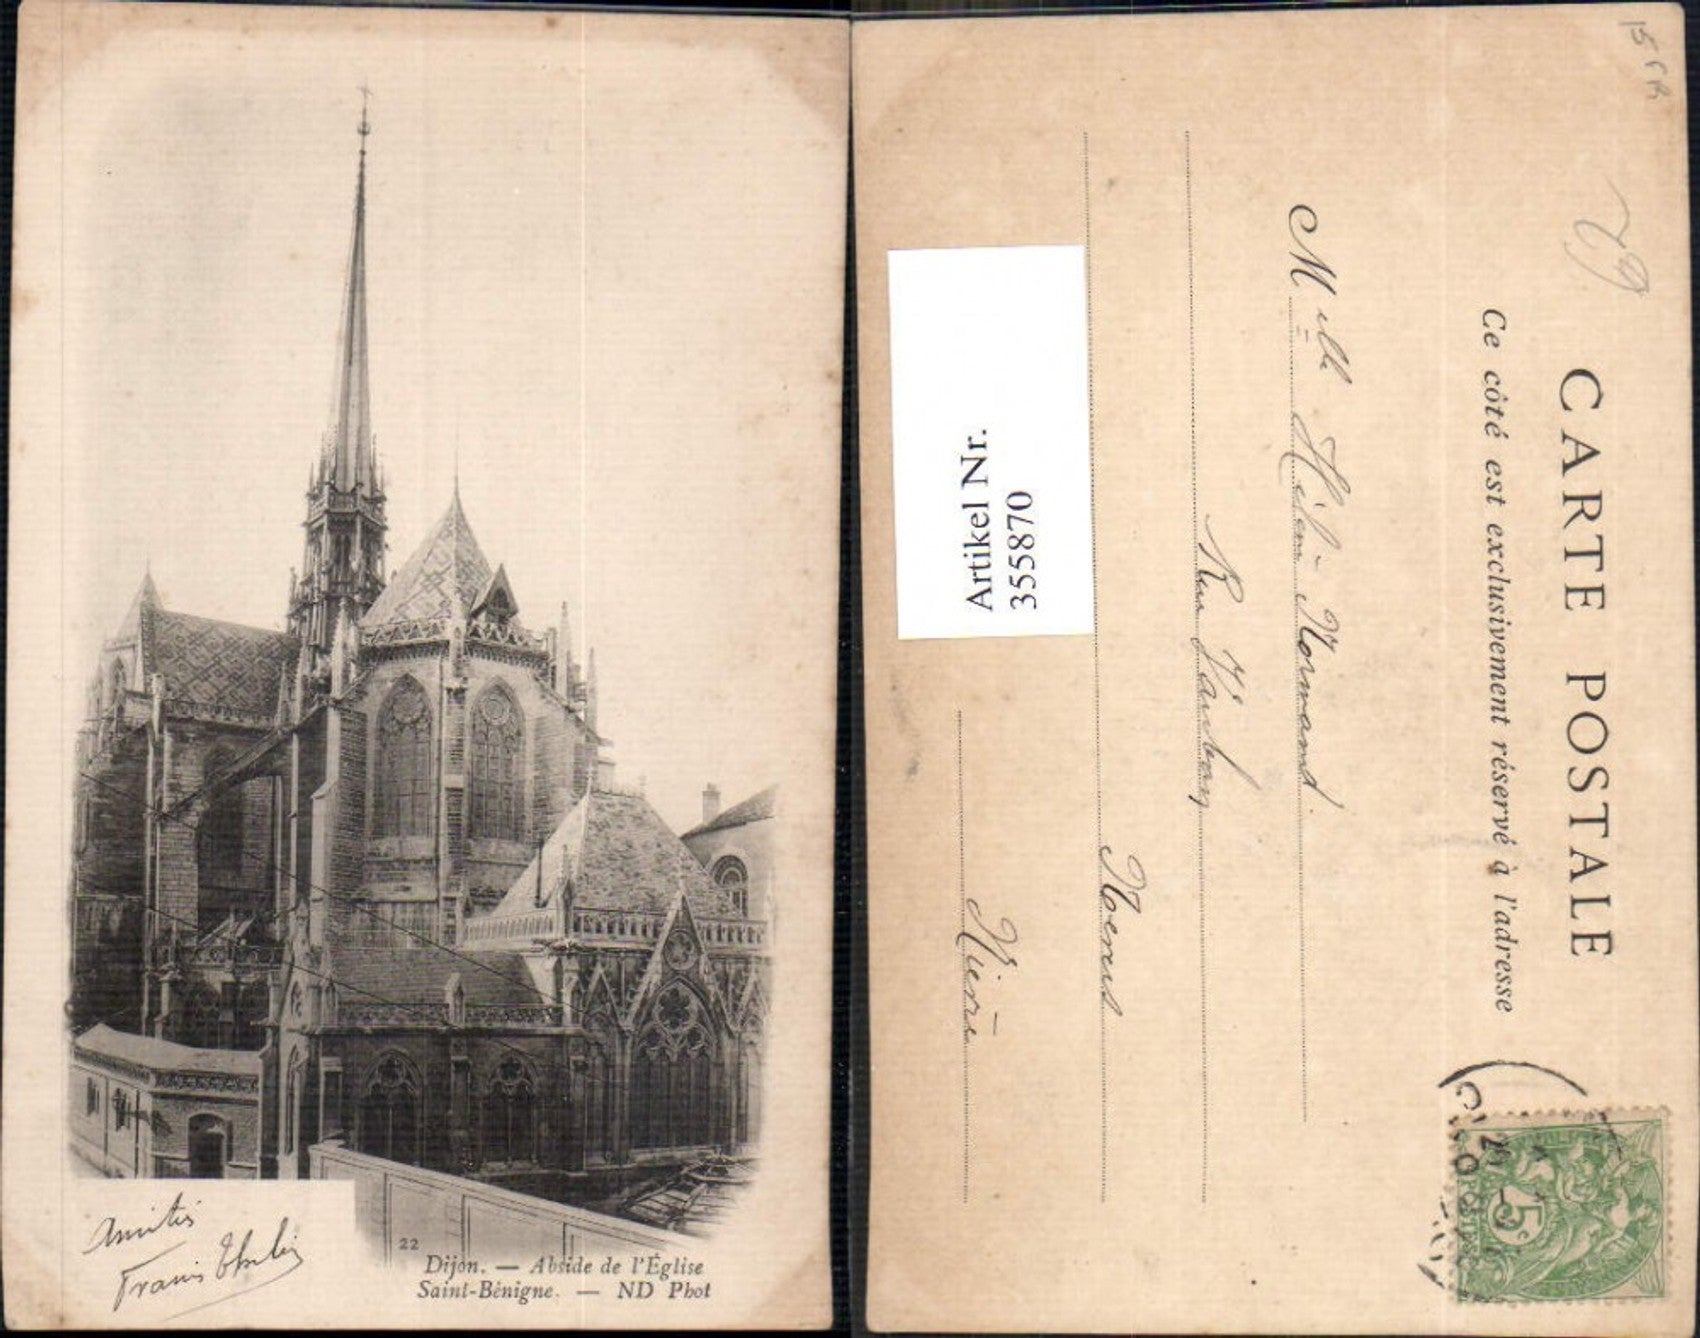 22
Dijon. — Abside de l'Église
Saint-Bénigne. — ND Phot
Amitiés
CARTE POSTALE
Ce côté est exclusivement réservé à l'adresse
Melle Hélène Normand
Rue
Nièvre
Artikel Nr.
355870
5c